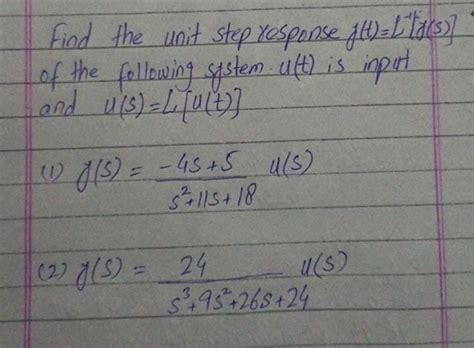 Find the unit step response y(t)=L⁻¹[y(s)]
of the following system. u(t) is input
and u(s)=L[u(t)]
(1) y(s) = (-4s+5)/(s²+11s+18) u(s)
(2) y(s) = 24/(s³+9s²+26s+24) u(s)